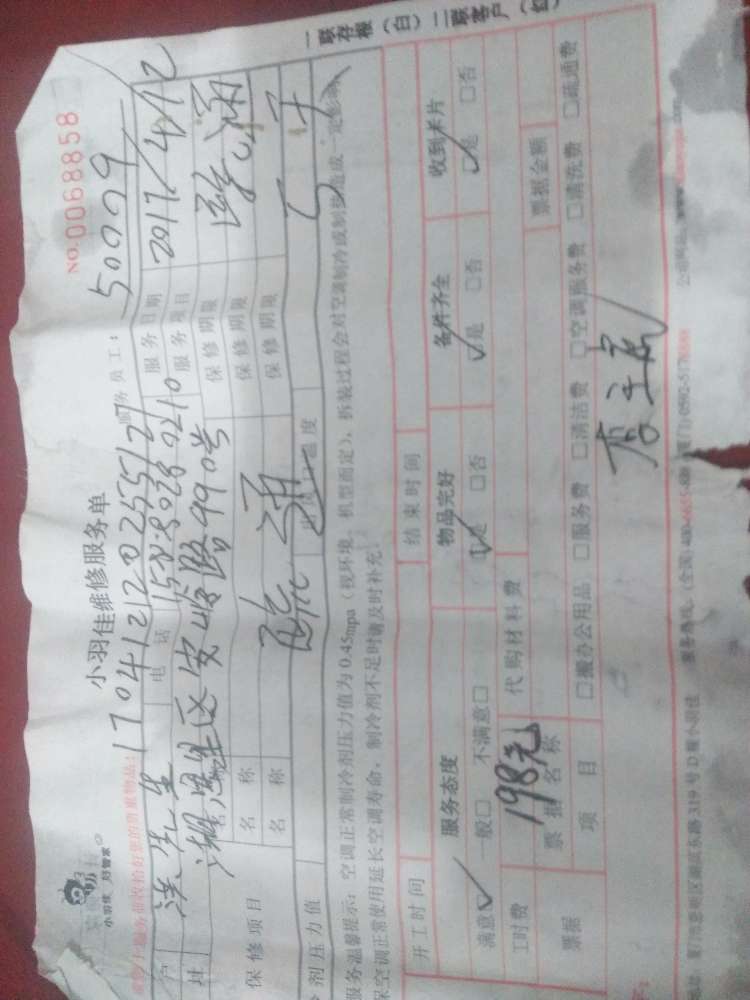 一联存根（白）二联客户（红）
NO.0068858
小羽佳
好管家
小羽佳维修服务单
170412120255127 服务员工：50009
洪先生 电话 15280280210 服务日期 2017/4/12
址 湖里区安岭路990号 服务项目
保修项目 名称 保修期限
名称 保修期限
名称 疏通 保修期限
剂压力值 出风口温度
服务温馨提示：空调正常制冷剂压力值为0.45mpa（视环境、机型而定），拆装过程会对空调制冷或制热造成一定影响
保空调正常使用延长空调寿命，制冷剂不足时请及时补充。
开工时间 结束时间
服务态度 物品完好 备件齐全 收到卡片
满意☑ 一般□ 不满意□ ☑是 □否 ☑是 □否 ☑是 □否
工时费 198元 代购材料费
票据 票据名称 票据金额
项目 □搬办公用品 □服务费 □清洁费 □空调服务费 □清洗费 □疏通费
厦门市思明区湖滨东路319号D幢小羽佳 服务热线：(全国)